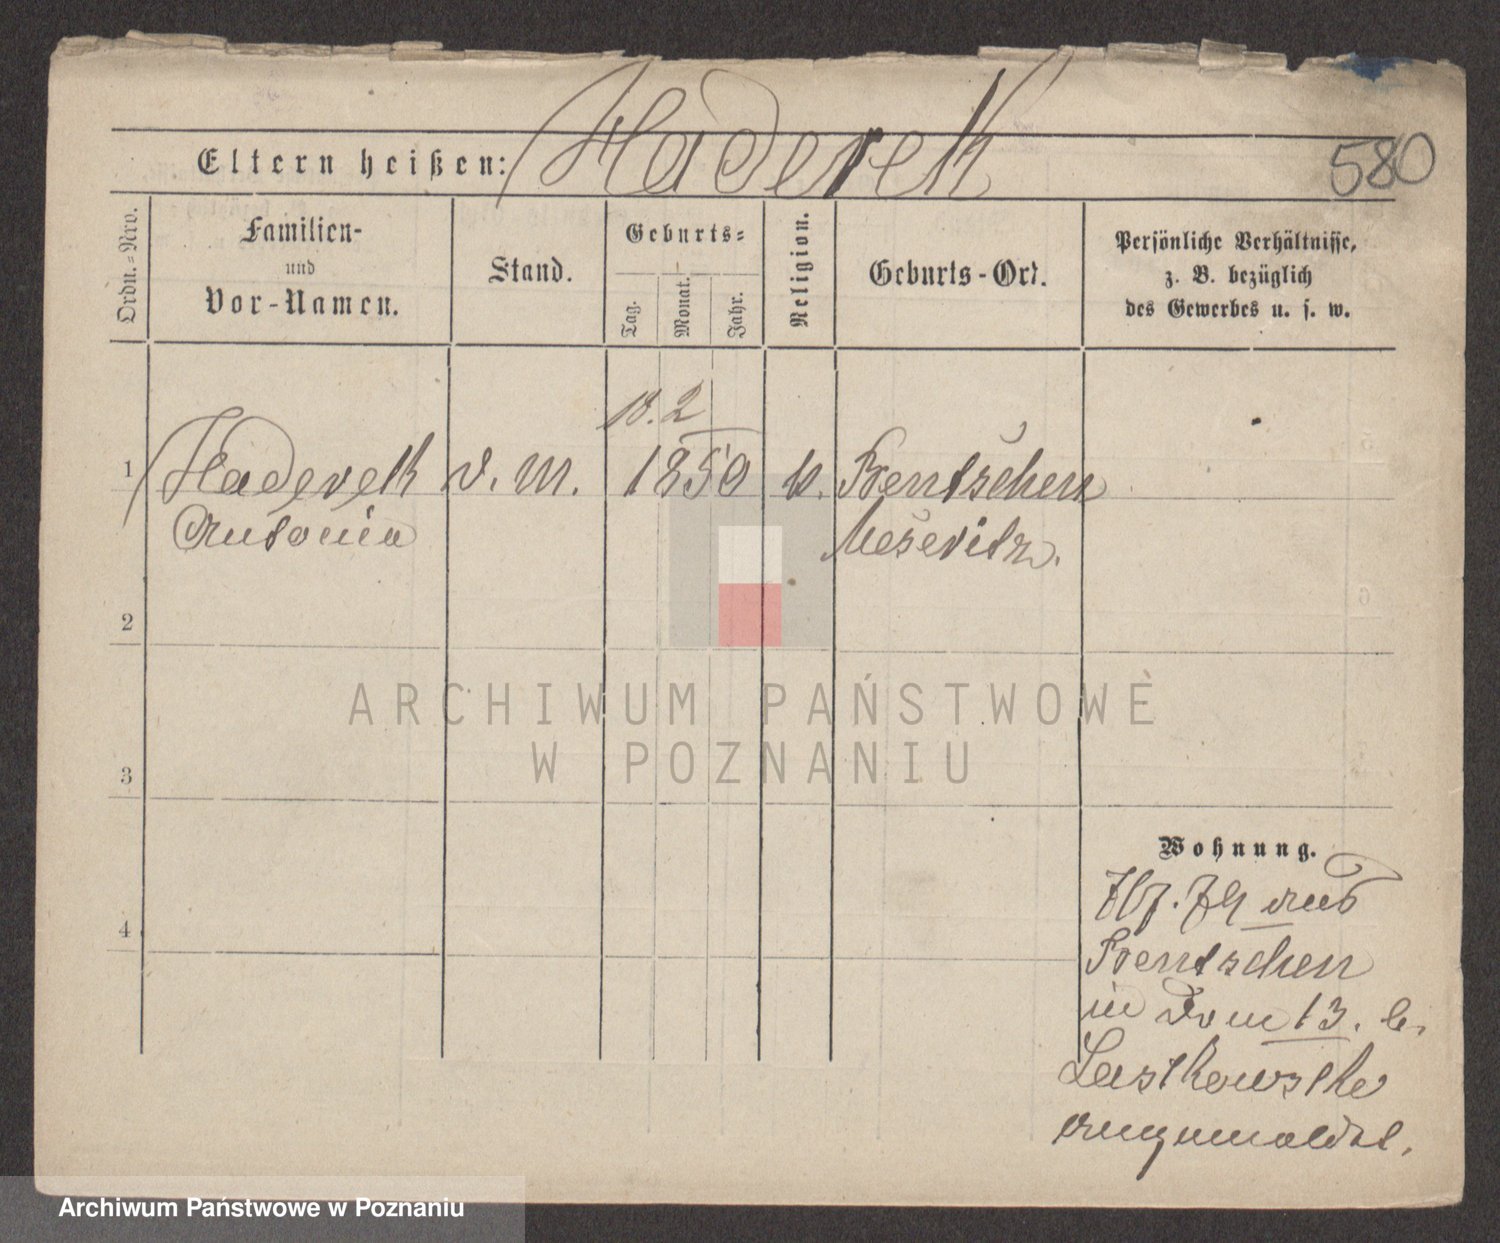 580
Eltern heißen: Haderek
Ordn.=Nro.
Familien-
und
Vor-Namen.
Stand.
Geburts=
Tag.
Monat.
Jahr.
Religion.
Geburts-Ort.
Persönliche Verhältnisse,
z. B. bezüglich
des Gewerbes u. s. w.
18. 2
1 Haderek d. M. 1850 Bentschen
Antonia Meseritz.
2
3
4
ARCHIWUM PAŃSTWOWE
W POZNANIU
Wohnung.
aus
Bentschen
in Dom 13. b.
Laskowska
angemeldet.
Archiwum Państwowe w Poznaniu